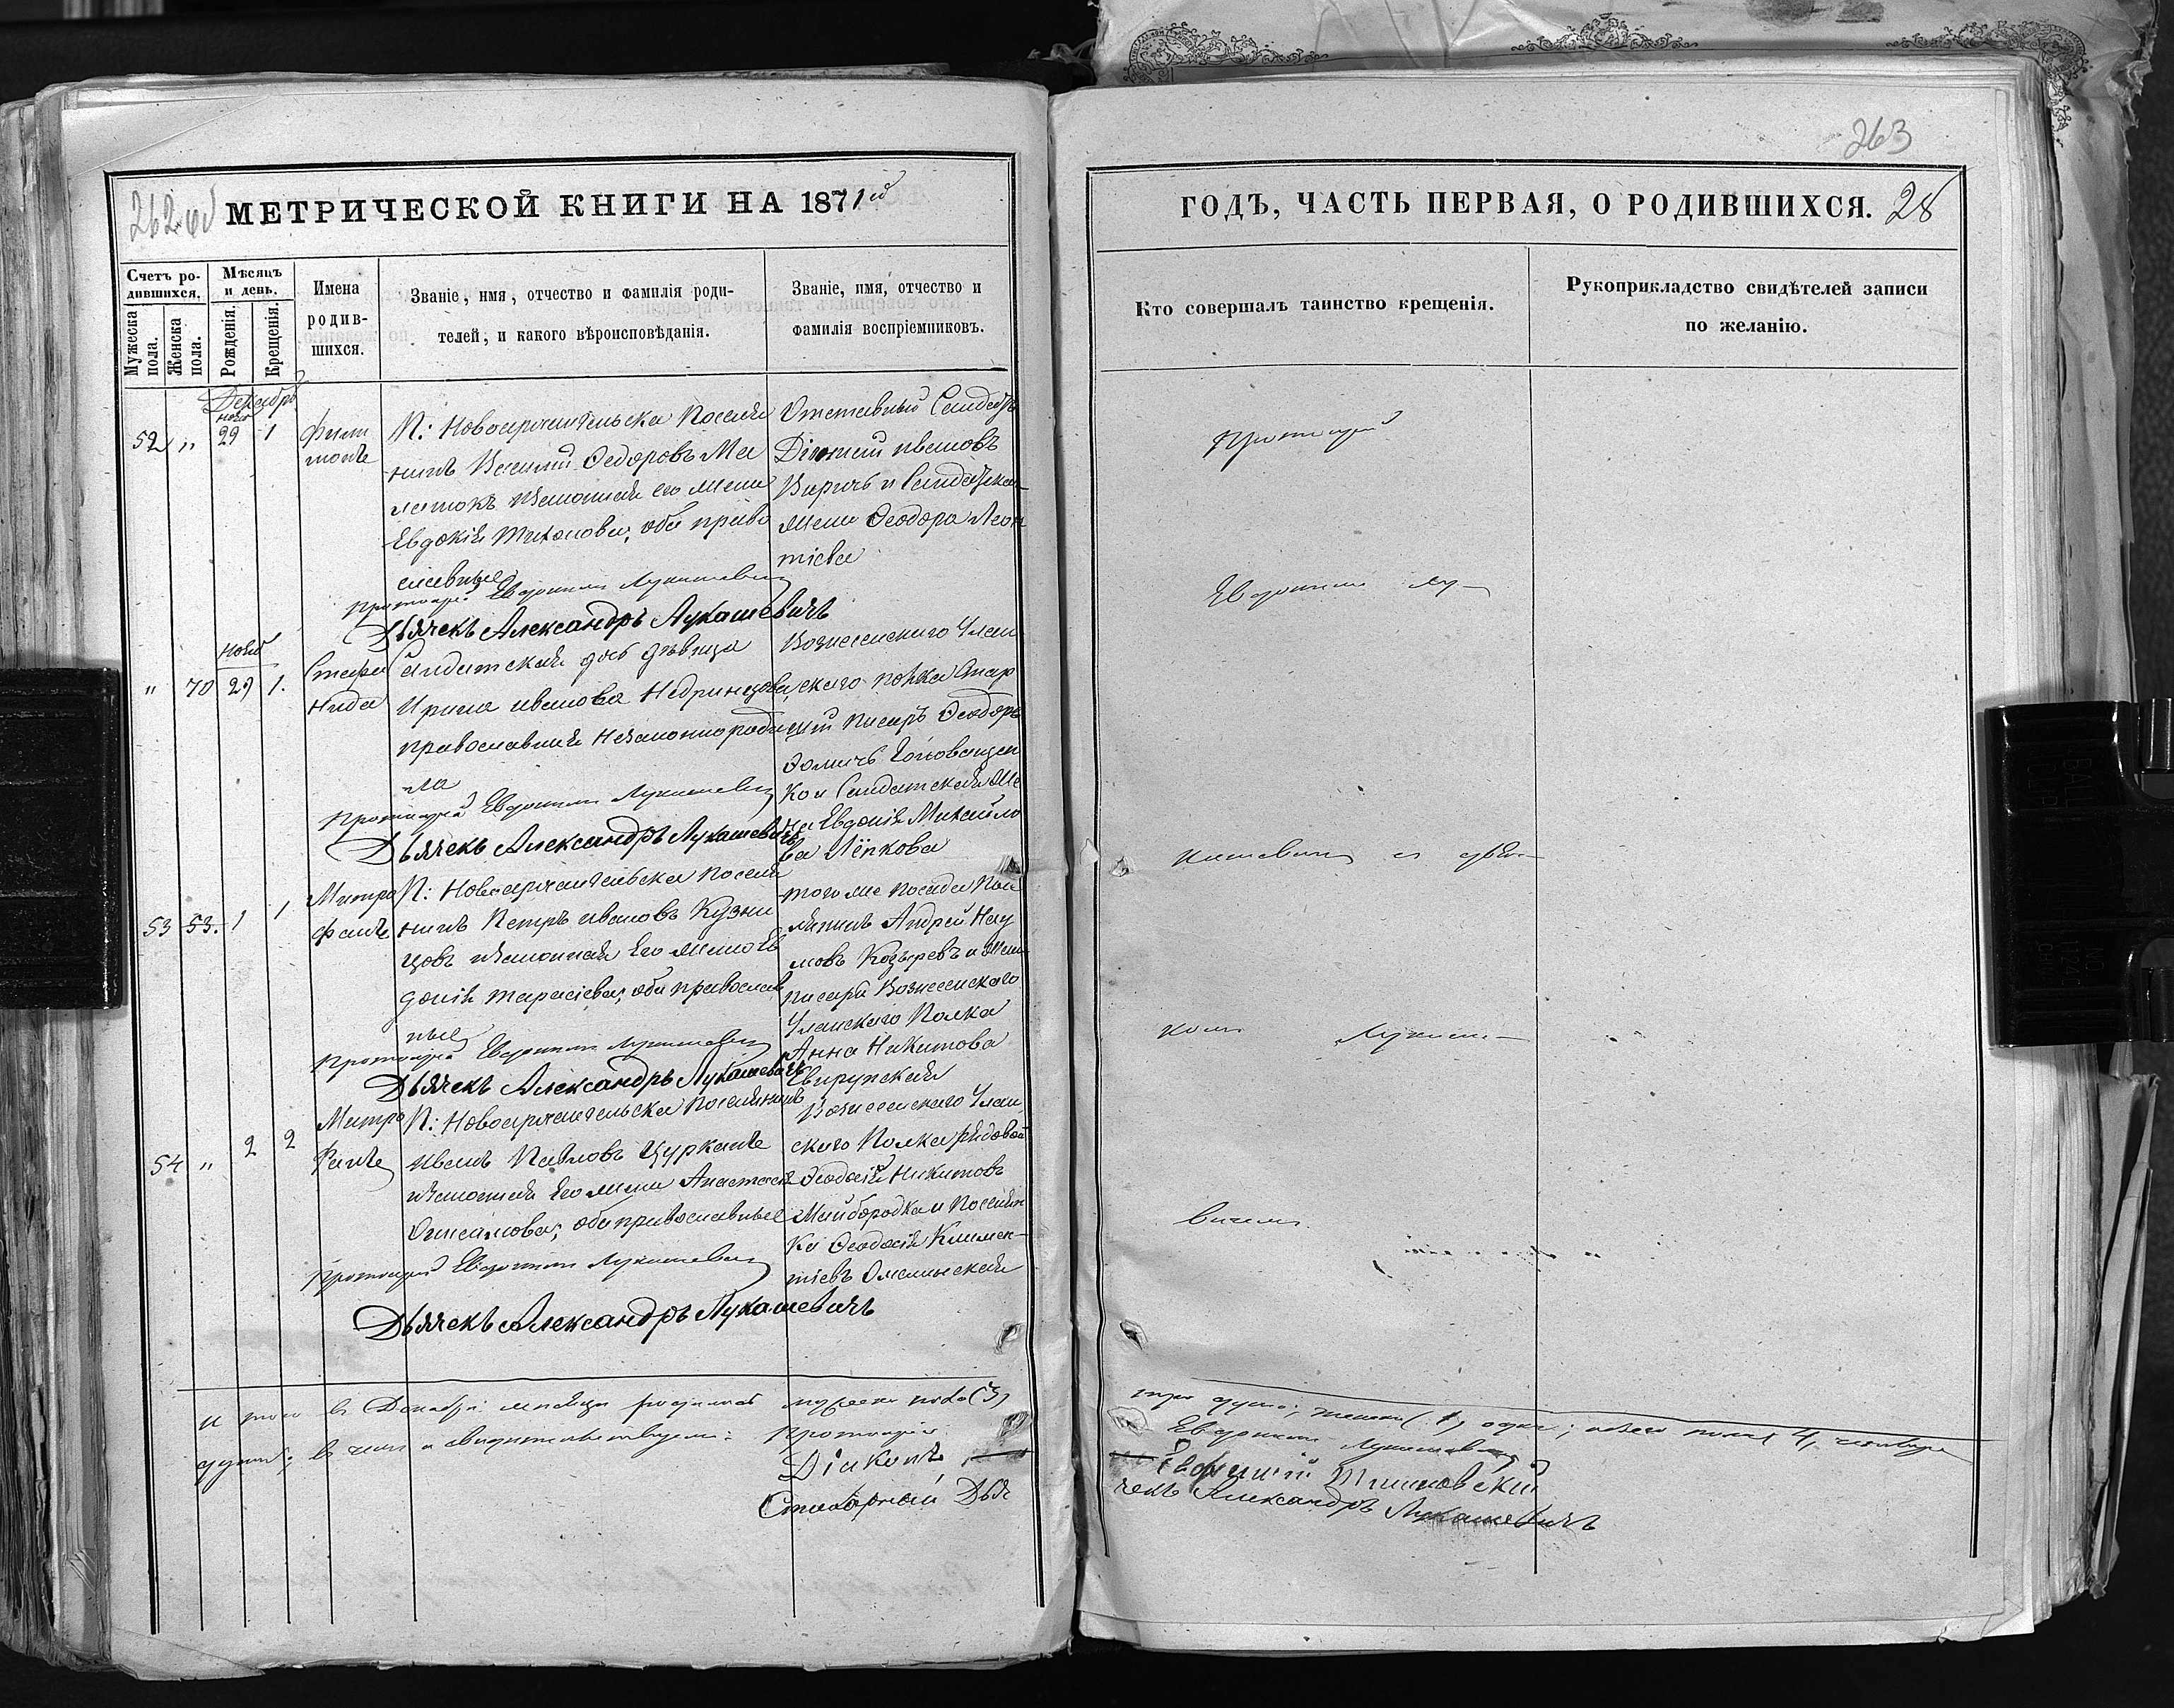 263
262 об МЕТРИЧЕСКОЙ КНИГИ НА 1871й
ГОДЪ, ЧАСТЬ ПЕРВАЯ, О РОДИВШИХСЯ. 28
Счетъ родившихся.
Мужеска пола.
Женска пола.
Мѣсяцъ и день.
Рожденія.
Крещенія.
Имена
родив-
шихся.
Званіе, имя, отчество и фамилія роди-
телей, и какого вѣроисповѣданія.
Званіе, имя, отчество и
фамилія воспріемниковъ.
Кто совершалъ таинство крещенія.
Рукоприкладство свидѣтелей записи
по желанію.
Декабрь
нояб
52 „ 29 1
Фили
монъ
П: Новоархангельска Поселя
нинъ Василій Ѳедоровъ Ма
латокъ и законная его жена
Евдокія Тихонова, оба право
славные
Отставный Солдатъ
Діомий Ивановъ
Киричъ и Солдатская
жена Ѳеодора Леон
тіева
Протоіерей Евдокимъ Лукашевичъ
Дьячекъ Александръ Лукашевичъ
нояб
„ 70 29 1.
Стефа
нида
Солдатская дочь дѣвица
Ирина Иванова
православная незаконно роди
ла
Вознесенскаго Улан
скаго полка Стар
шій писарь Ѳеодоръ
Ѳомичъ Голованцен
ко и Солдатская же
на Евдокія Михайло
ва Лёпкова
Протоіерей Евдокимъ Лукашевичъ
Дьячекъ Александръ Лукашевичъ
53 53. 1 1
Митро
фанъ
П: Новоархангельска Поселя
нинъ Петръ Ивановъ Кузне
цовъ и законная его жена Ев
докія Тарасіева, оба православ
ные
того же посада Посе
лянинъ Андрей Нау
мовъ Козыревъ и жена
писаря Вознесенскаго
Уланскаго Полка
Анна Никитова
Протоіерей Евдокимъ Лукашевичъ
Дьячекъ Александръ Лукашевичъ
54 „ 2 2
Митро
фанъ
П: Новоархангельска Поселянинъ
Иванъ Павловъ Цурканъ
и законная его жена Анастасія
оба православные
Вознесенскаго Улан
скаго Полка рядовой
Ѳеодосій Никитовъ
Майбородка и Поселян
ка Ѳеодосія Климен-
тіева Омелинская
Протоіерей Евдокимъ Лукашевичъ
Дьячекъ Александръ Лукашевичъ
Протоіерей
Евдокимъ Лу-
кашевичъ съ дьяч-
комъ Лукаше-
вичемъ
И того въ Декабрѣ мѣсяцѣ родилось мужеска пола (3) три души, женска (1) одна; обоего пола 4, четыре
души; въ чемъ и свидѣтельствуемъ: Протоіерей Евдокимъ Лукашевичъ
Діаконъ
Стихарный Дья
чекъ Александръ Лукашевичъ